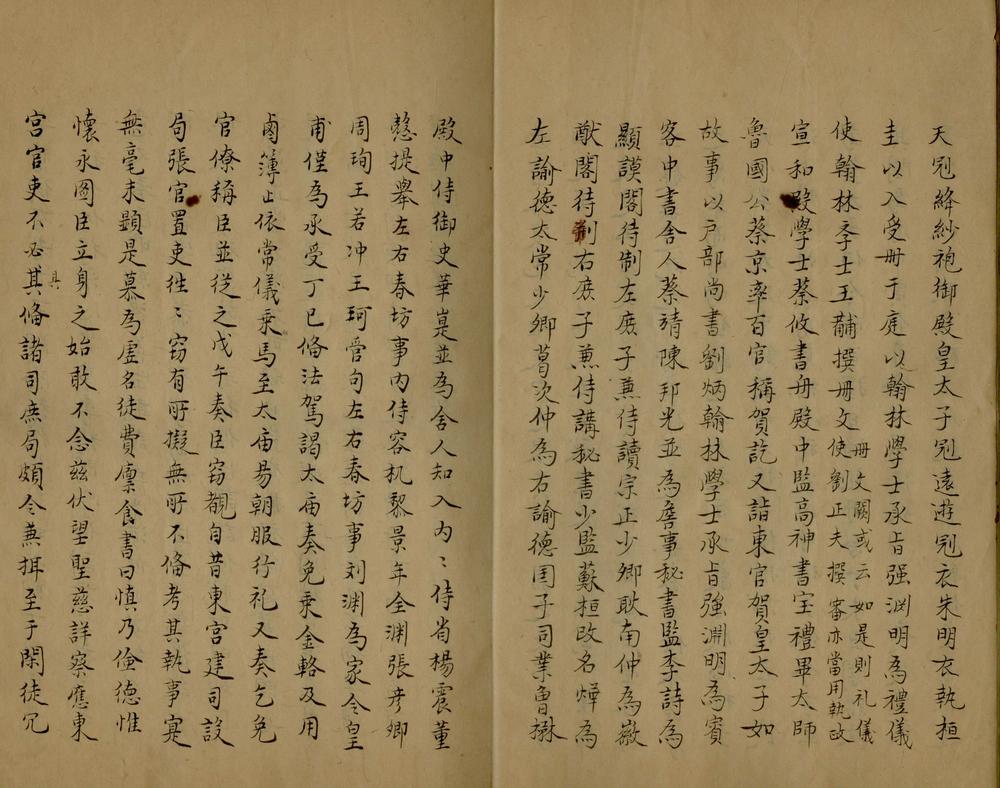 天冠絳紗袍御殿皇太子冠遠遊冠衣朱明衣執桓
圭以入受冊于庭以翰林學士承旨强渊明為禮儀
使翰林學士王黼撰冊文冊文闕或云如是則礼儀使劉正夫撰審亦當用執政
宣和殿學士蔡攸書冊殿中監高神書宝禮畢太師
魯國公蔡京率百官稱賀訖又詣東官賀皇太子如
故事以戸部尚書劉炳翰林學士承旨強淵明為賓
客中書舎人蔡靖陳邦光並為詹事秘書監李詩為
顯謨閣待制左庶子兼侍讀宗正少卿耿南仲為徽
猷閣待制右庶子兼侍講秘書少監蘇桓改名燁為
左諭德太常少卿葛次仲為右諭德囯子司業魯㮤
殿中侍御史華㝡並為舍人知入内〻侍省楊震董
懃提舉左右春坊事内侍容机黎景年全渊張彦卿
周珣王若冲王珂管句左右春坊事刘渊為家令皇
甫僅為承受丁巳俻法駕謁太庙奏免乗金輅及用
鹵簿止依常儀乗馬至太庙易朝服行礼又奏乞免
官僚稱臣並從之戊午奏臣窃覩自昔東宮建司設
局張官置吏徃〻窃有所擬無所不俻考其執事寔
無毫末顕是慕為虚名徒費廩食書曰慎乃儉德惟
懷永圖臣立身之始敢不念茲伏望聖慈詳察應東
宮官吏不必其具俻諸司庶局頗令兼摂至于閑徒冗